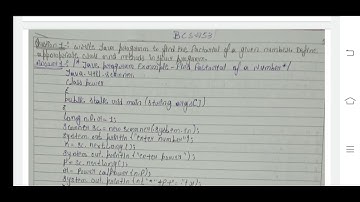 BCSL-053
Question 1: Write Java program to find the Factorial of a given number. Define
appropriate class and methods in your program.
Answer 1: /* Java program Example - Find Factorial of a Number */
Java.util.Scanner
Class power
{
public static void main (String args[])
{
long n,p,
Scanner sc = new Scanner(System.in);
System.out.println("enter number");
n = sc.nextLong();
System.out.println("enter power");
p = sc.nextLong();
Power.calPower(n,p);
System.out.println(n+"^"+p+"